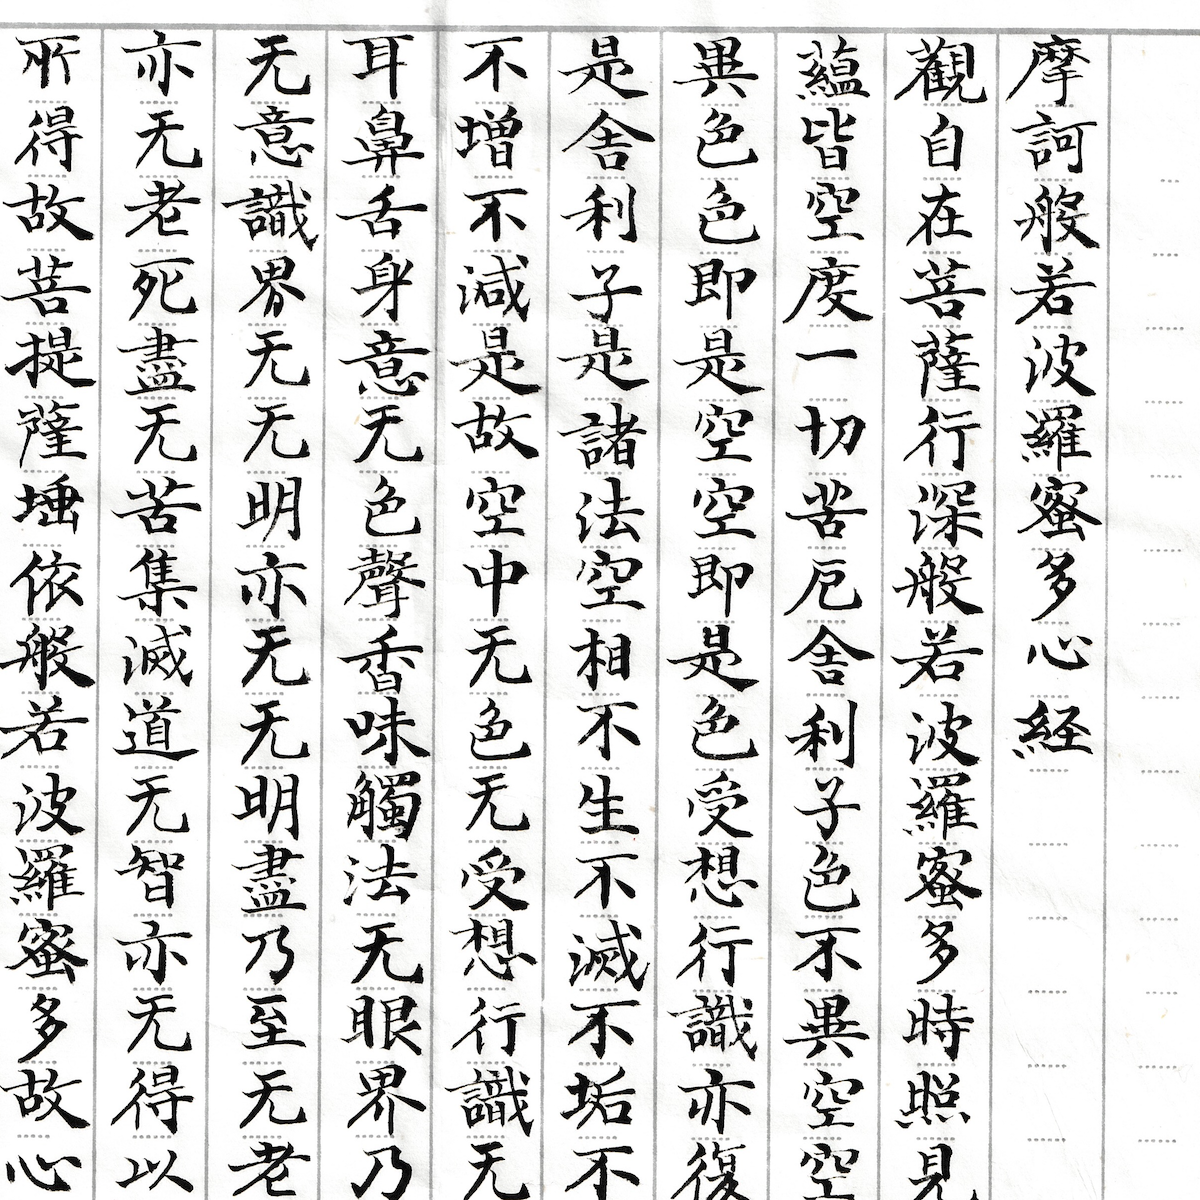 摩訶般若波羅蜜多心経
觀自在菩薩行深般若波羅蜜多時照見
蘊皆空度一切苦厄舍利子色不異空空
異色色即是空空即是色受想行識亦復
是舍利子是諸法空相不生不滅不垢不
不增不減是故空中无色无受想行識无
耳鼻舌身意无色聲香味觸法无眼界乃
无意識界无无明亦无无明盡乃至无老
亦无老死盡无苦集滅道无智亦无得以
所得故菩提薩埵依般若波羅蜜多故心